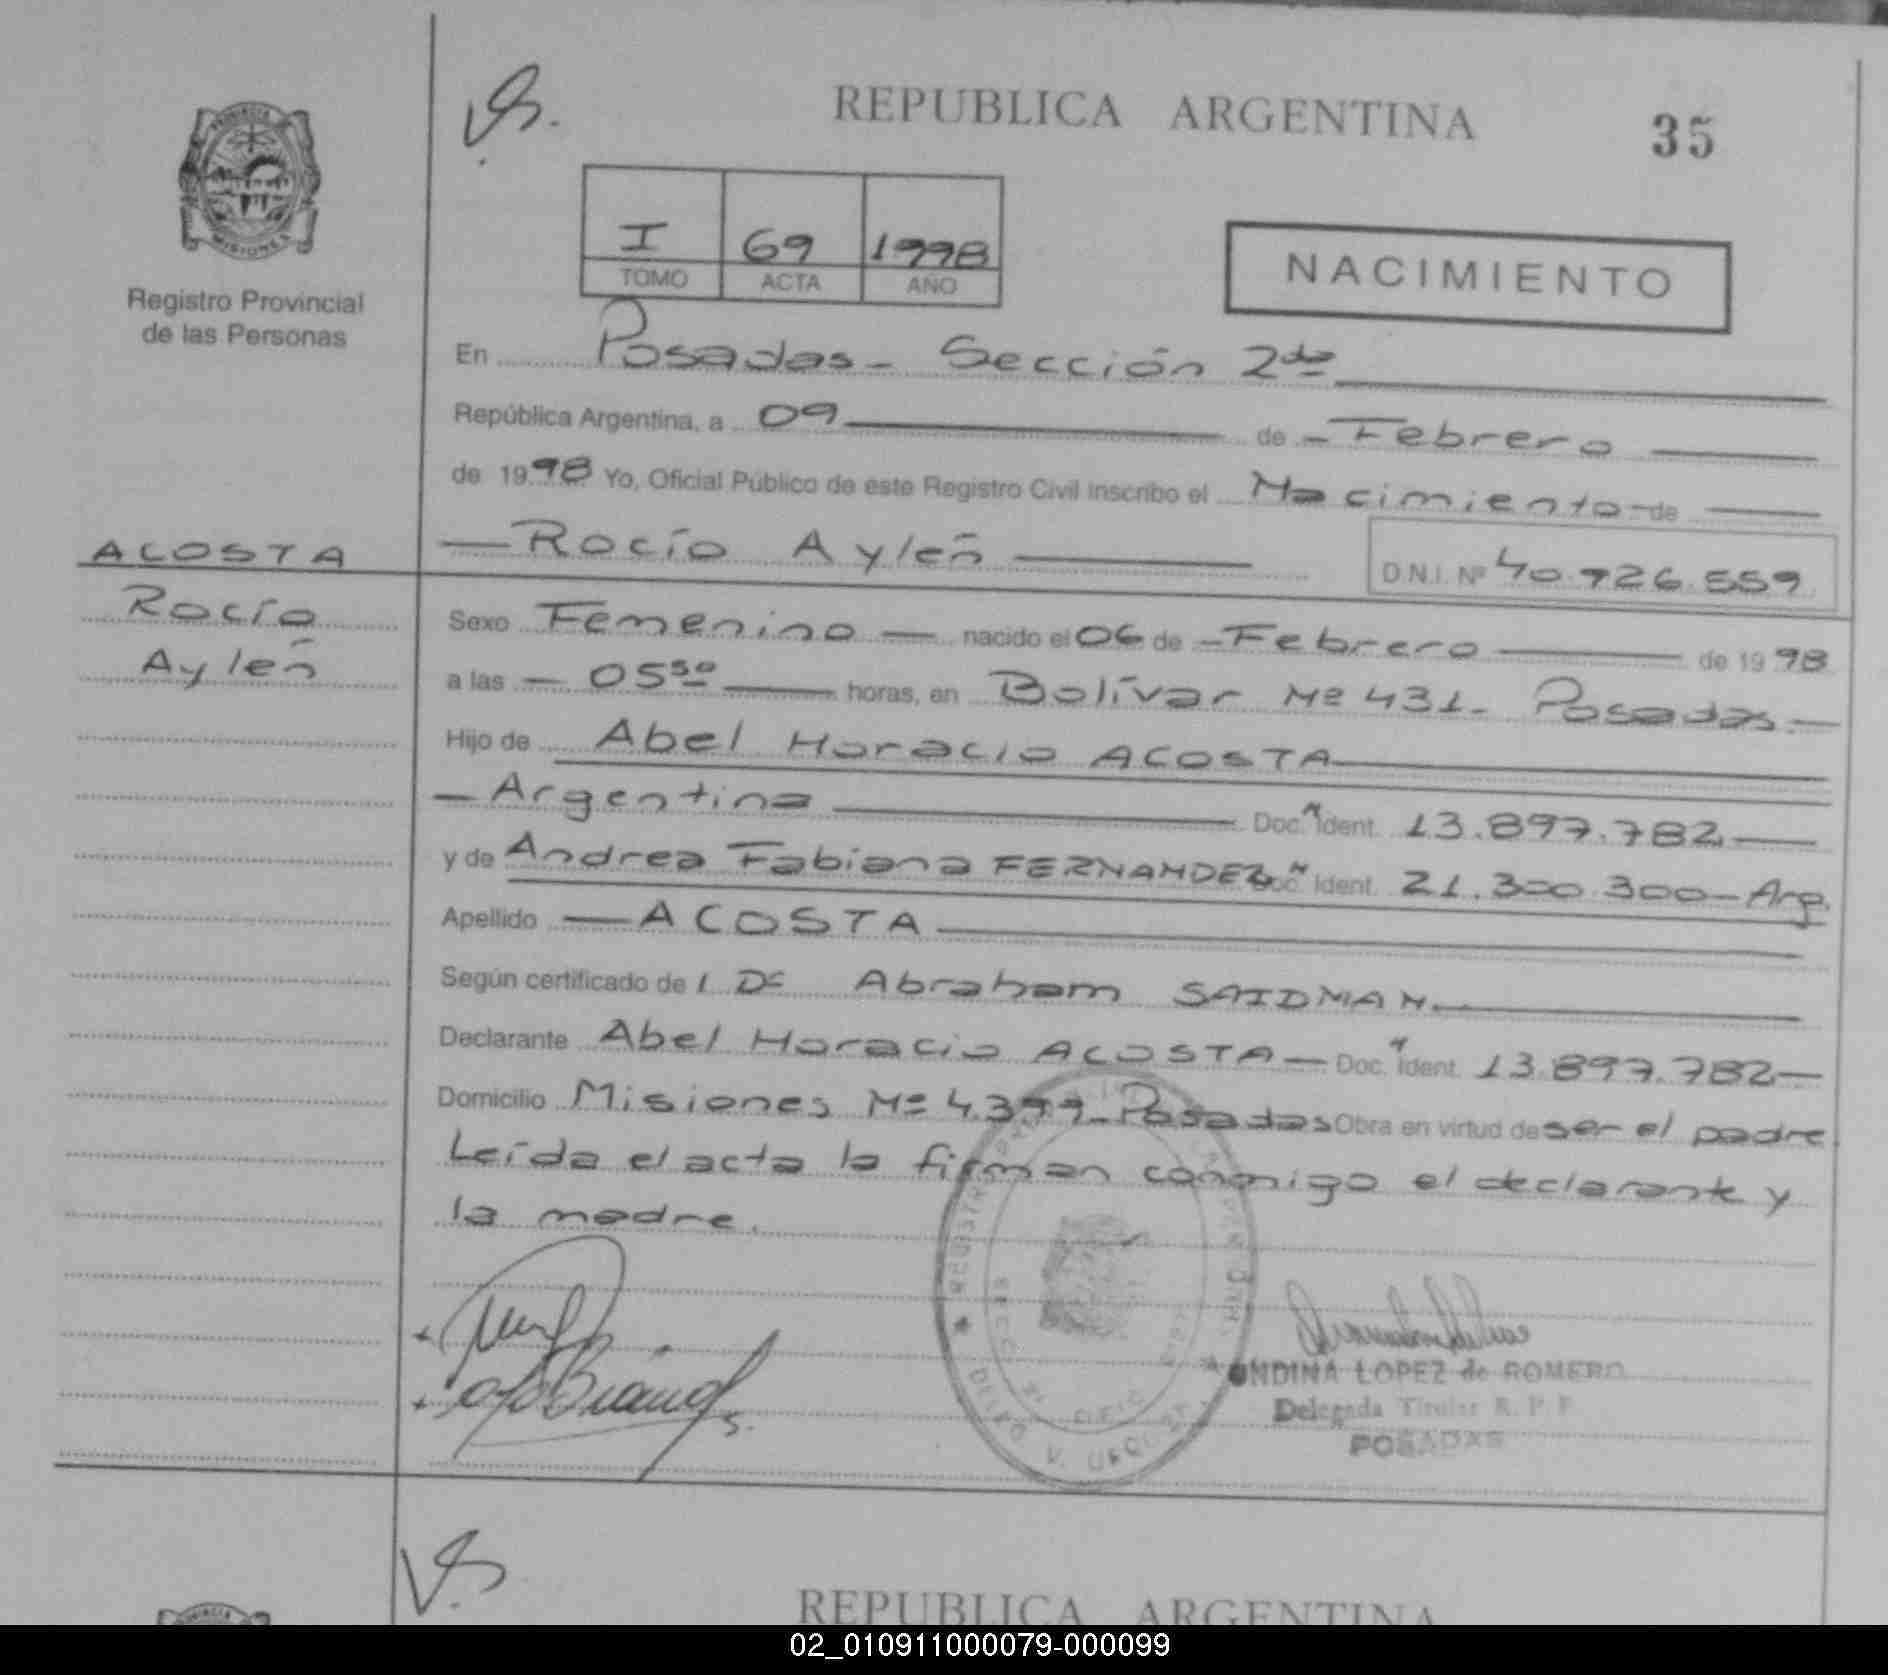 REPUBLICA ARGENTINA
35
PROVINCIA
MISIONES
Registro Provincial
de las Personas
I 69 1998
TOMO ACTA AÑO
NACIMIENTO
En Posadas - Sección 2da
República Argentina, a 09 de Febrero
de 1998 Yo, Oficial Público de este Registro Civil Inscribo el Nacimiento de
Rocío Ayleñ
D.N.I. Nº 40.926.559
ACOSTA
Rocío
Ayleñ
Sexo Femenino nacido el 06 de Febrero de 1998
a las 05 50 horas, en Bolívar Nº 431 - Posadas -
Hijo de Abel Horacio ACOSTA
Argentina Doc. Ident. 13.897.782
y de Andrea Fabiana FERNANDEZ Doc. Ident. 21.300.300 - Arg.
Apellido ACOSTA
Según certificado de l Dr Abraham SAIDMAN
Declarante Abel Horacio ACOSTA - Doc. Ident. 13.897.782 -
Domicilio Misiones Nº 4.399 - Posadas Obra en virtud de ser el padre
Leída el acta la firman conmigo el declarante y
la madre.
ONDINA LOPEZ de ROMERO
Delegada Titular R. P. P.
POSADAS
REPUBLICA ARGENTINA
02_010911000079-000099